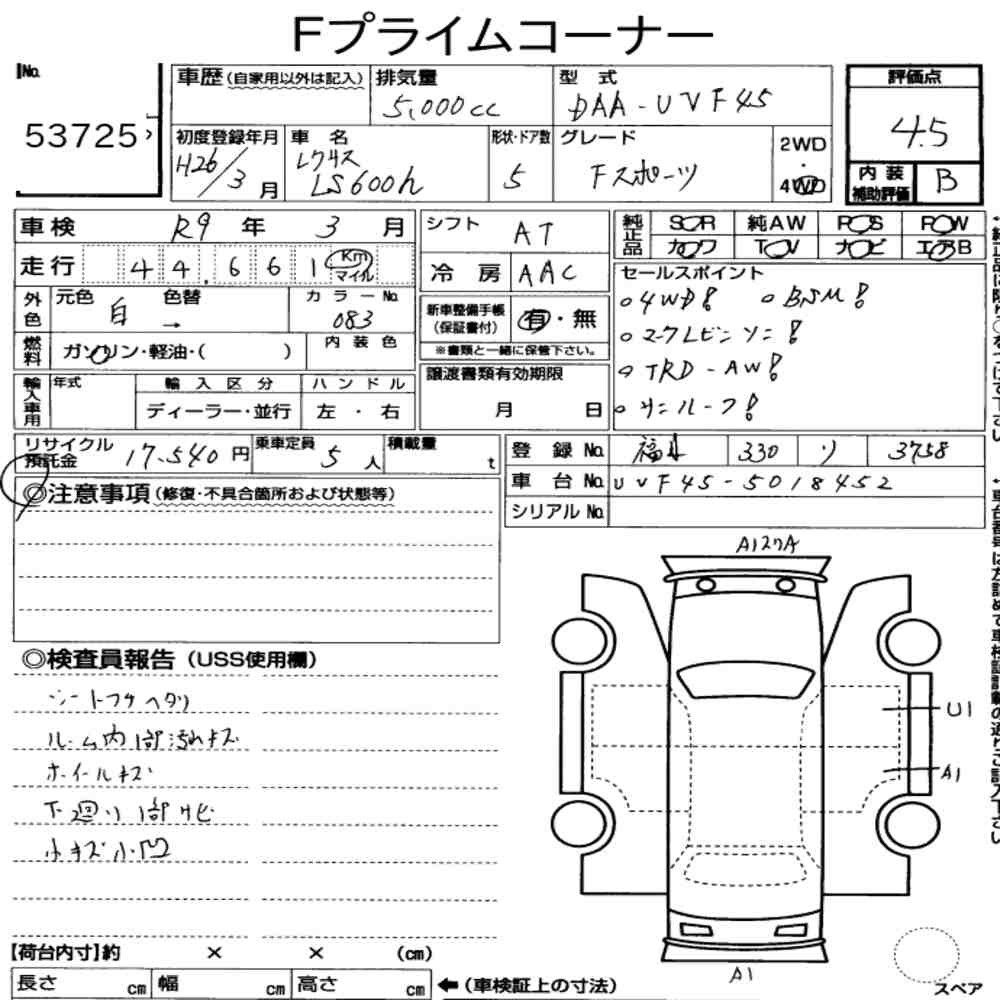 Fプライムコーナー
No.
53725
車歴(自家用以外は記入)
排気量
5,000cc
型式
DAA-UVF45
評価点
4.5
初度登録年月
H26/3月
車名
レクサス
LS600h
形状・ドア数
5
グレード
Fスポーツ
2WD
・
4WD
内装
補助評価
B
車検 R9年 3月
走行 44,661 Km マイル
シフト AT
冷房 AAC
純正品 SOR 純AW POS POW
カワ TOV ナビ エアB
外色 元色 白 色替 →
カラーNo. 083
燃料 ガソリン・軽油・( )
内装色
新車整備手帳
(保証書付)
有・無
※書類と一緒に保管下さい。
セールスポイント
○4WD!
○BSM!
○マークレビンソン!
○TRD-AW!
○サンルーフ!
輸入車用 年式
輸入区分
ディーラー・並行
ハンドル
左・右
譲渡書類有効期限
月 日
リサイクル預託金 17,540円
乗車定員 5人
積載量 t
登録No. 福井 330 ソ 3758
車台No. UVF45-5018452
シリアルNo.
◎注意事項(修復・不具合箇所および状態等)
◎検査員報告(USS使用欄)
シートスレヘタリ
ルーム内1部汚れキズ
ホイールキズ
下廻り1部サビ
小キズ小凹
A1
U1
A1
A1
スペア
【荷台内寸】約 × × (cm)
長さ cm 幅 cm 高さ cm
←(車検証上の寸法)